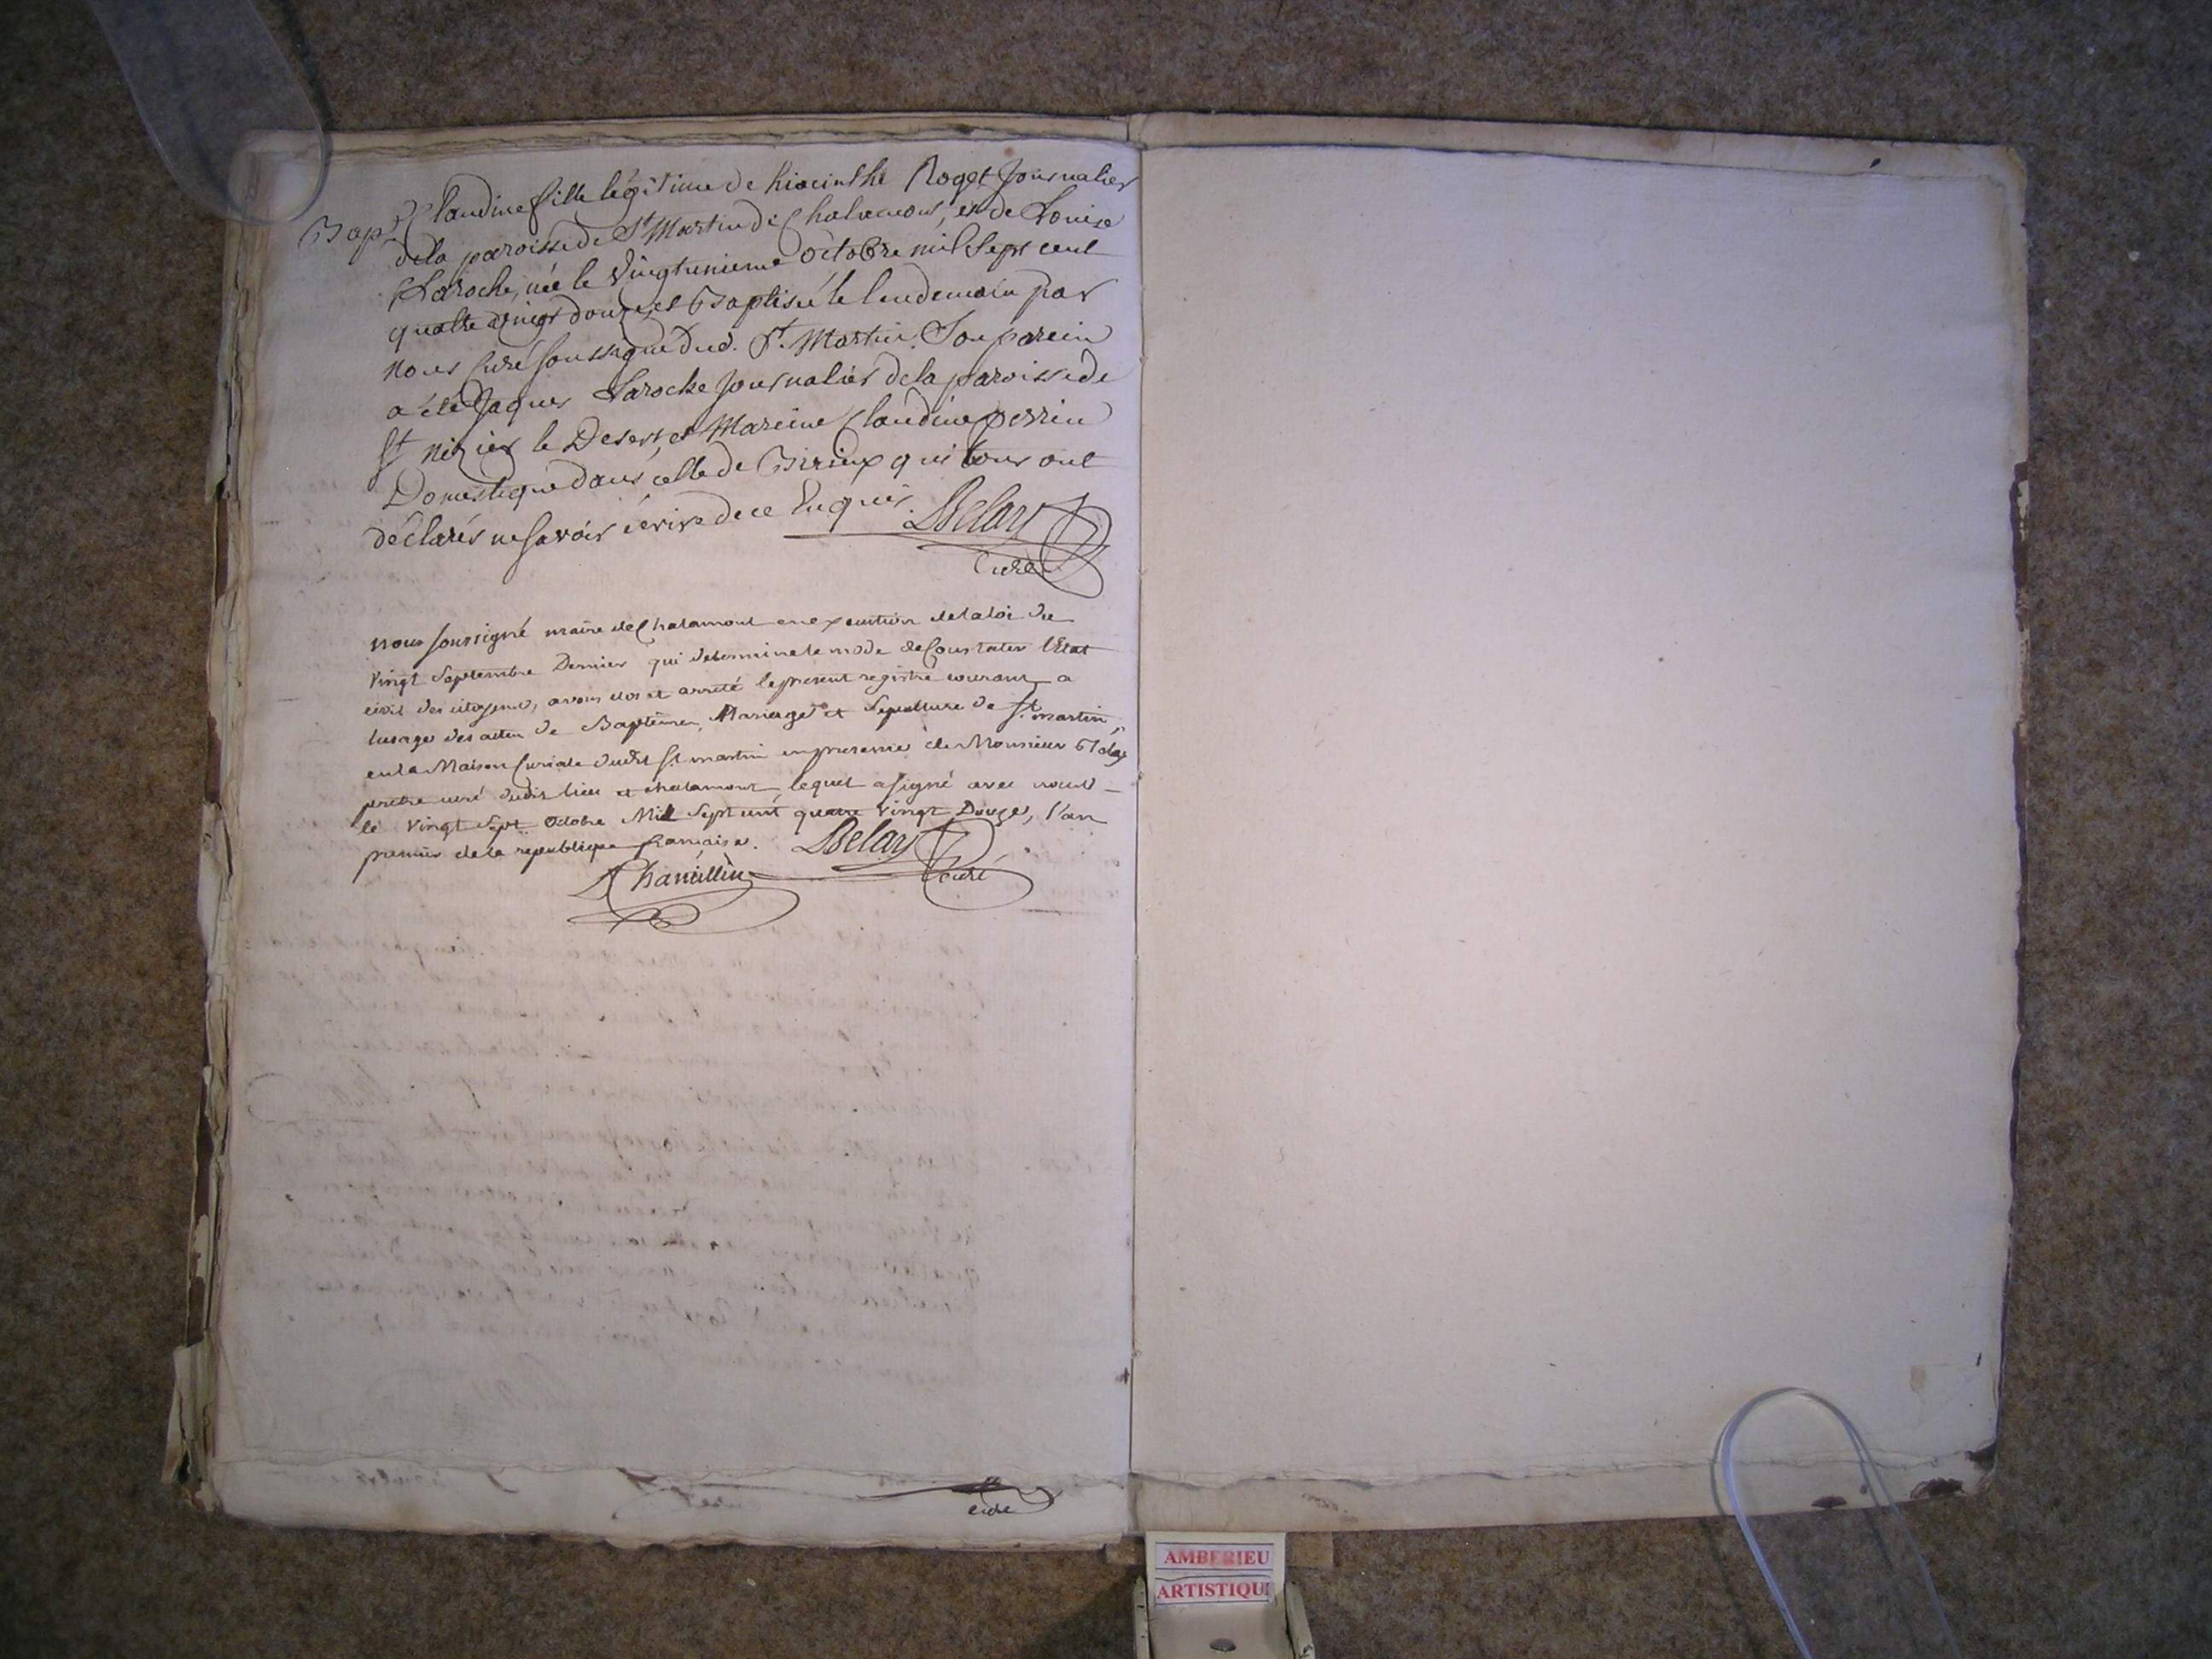 Bap. Claudine fille légitime de hiacinthe Roget Journalier
dela paroisse de St Martin de Chalamont, et de Louise
Laroche, née le vingtunieme octobre mil sept cent
quatre vingt douze, et Baptisée le lendemain par
nous curé soussigné dud. St. Martin. Son parein
a été Jaques Laroche Journalier dela paroisse de
St nizier le Desert, et Mareine Claudine perrin
Domestique dans celle de Birieux qui tous ont
déclarés ne savoir écrire de ce Enquis. Delay
Curé
nous soussigné maire de Chalamont en execution de la loi du
vingt Septembre Dernier qui determine le mode de Constater l'Etat
civil des citoyens, avons clos et arreté le present registre courant a
lusage des actes de Baptême, Mariage et Sepulture de St. martin,
en la Maison Curiale dudit St. martin en presence de Monsieur Delay
prêtre curé dudit lieu et chalamont, lequel a signé avec nous
le vingt sept octobre Mil Sept cent quatre vingt Douze, l'an
premier de la republique française. Delay
curé
curé
AMBERIEU
ARTISTIQU